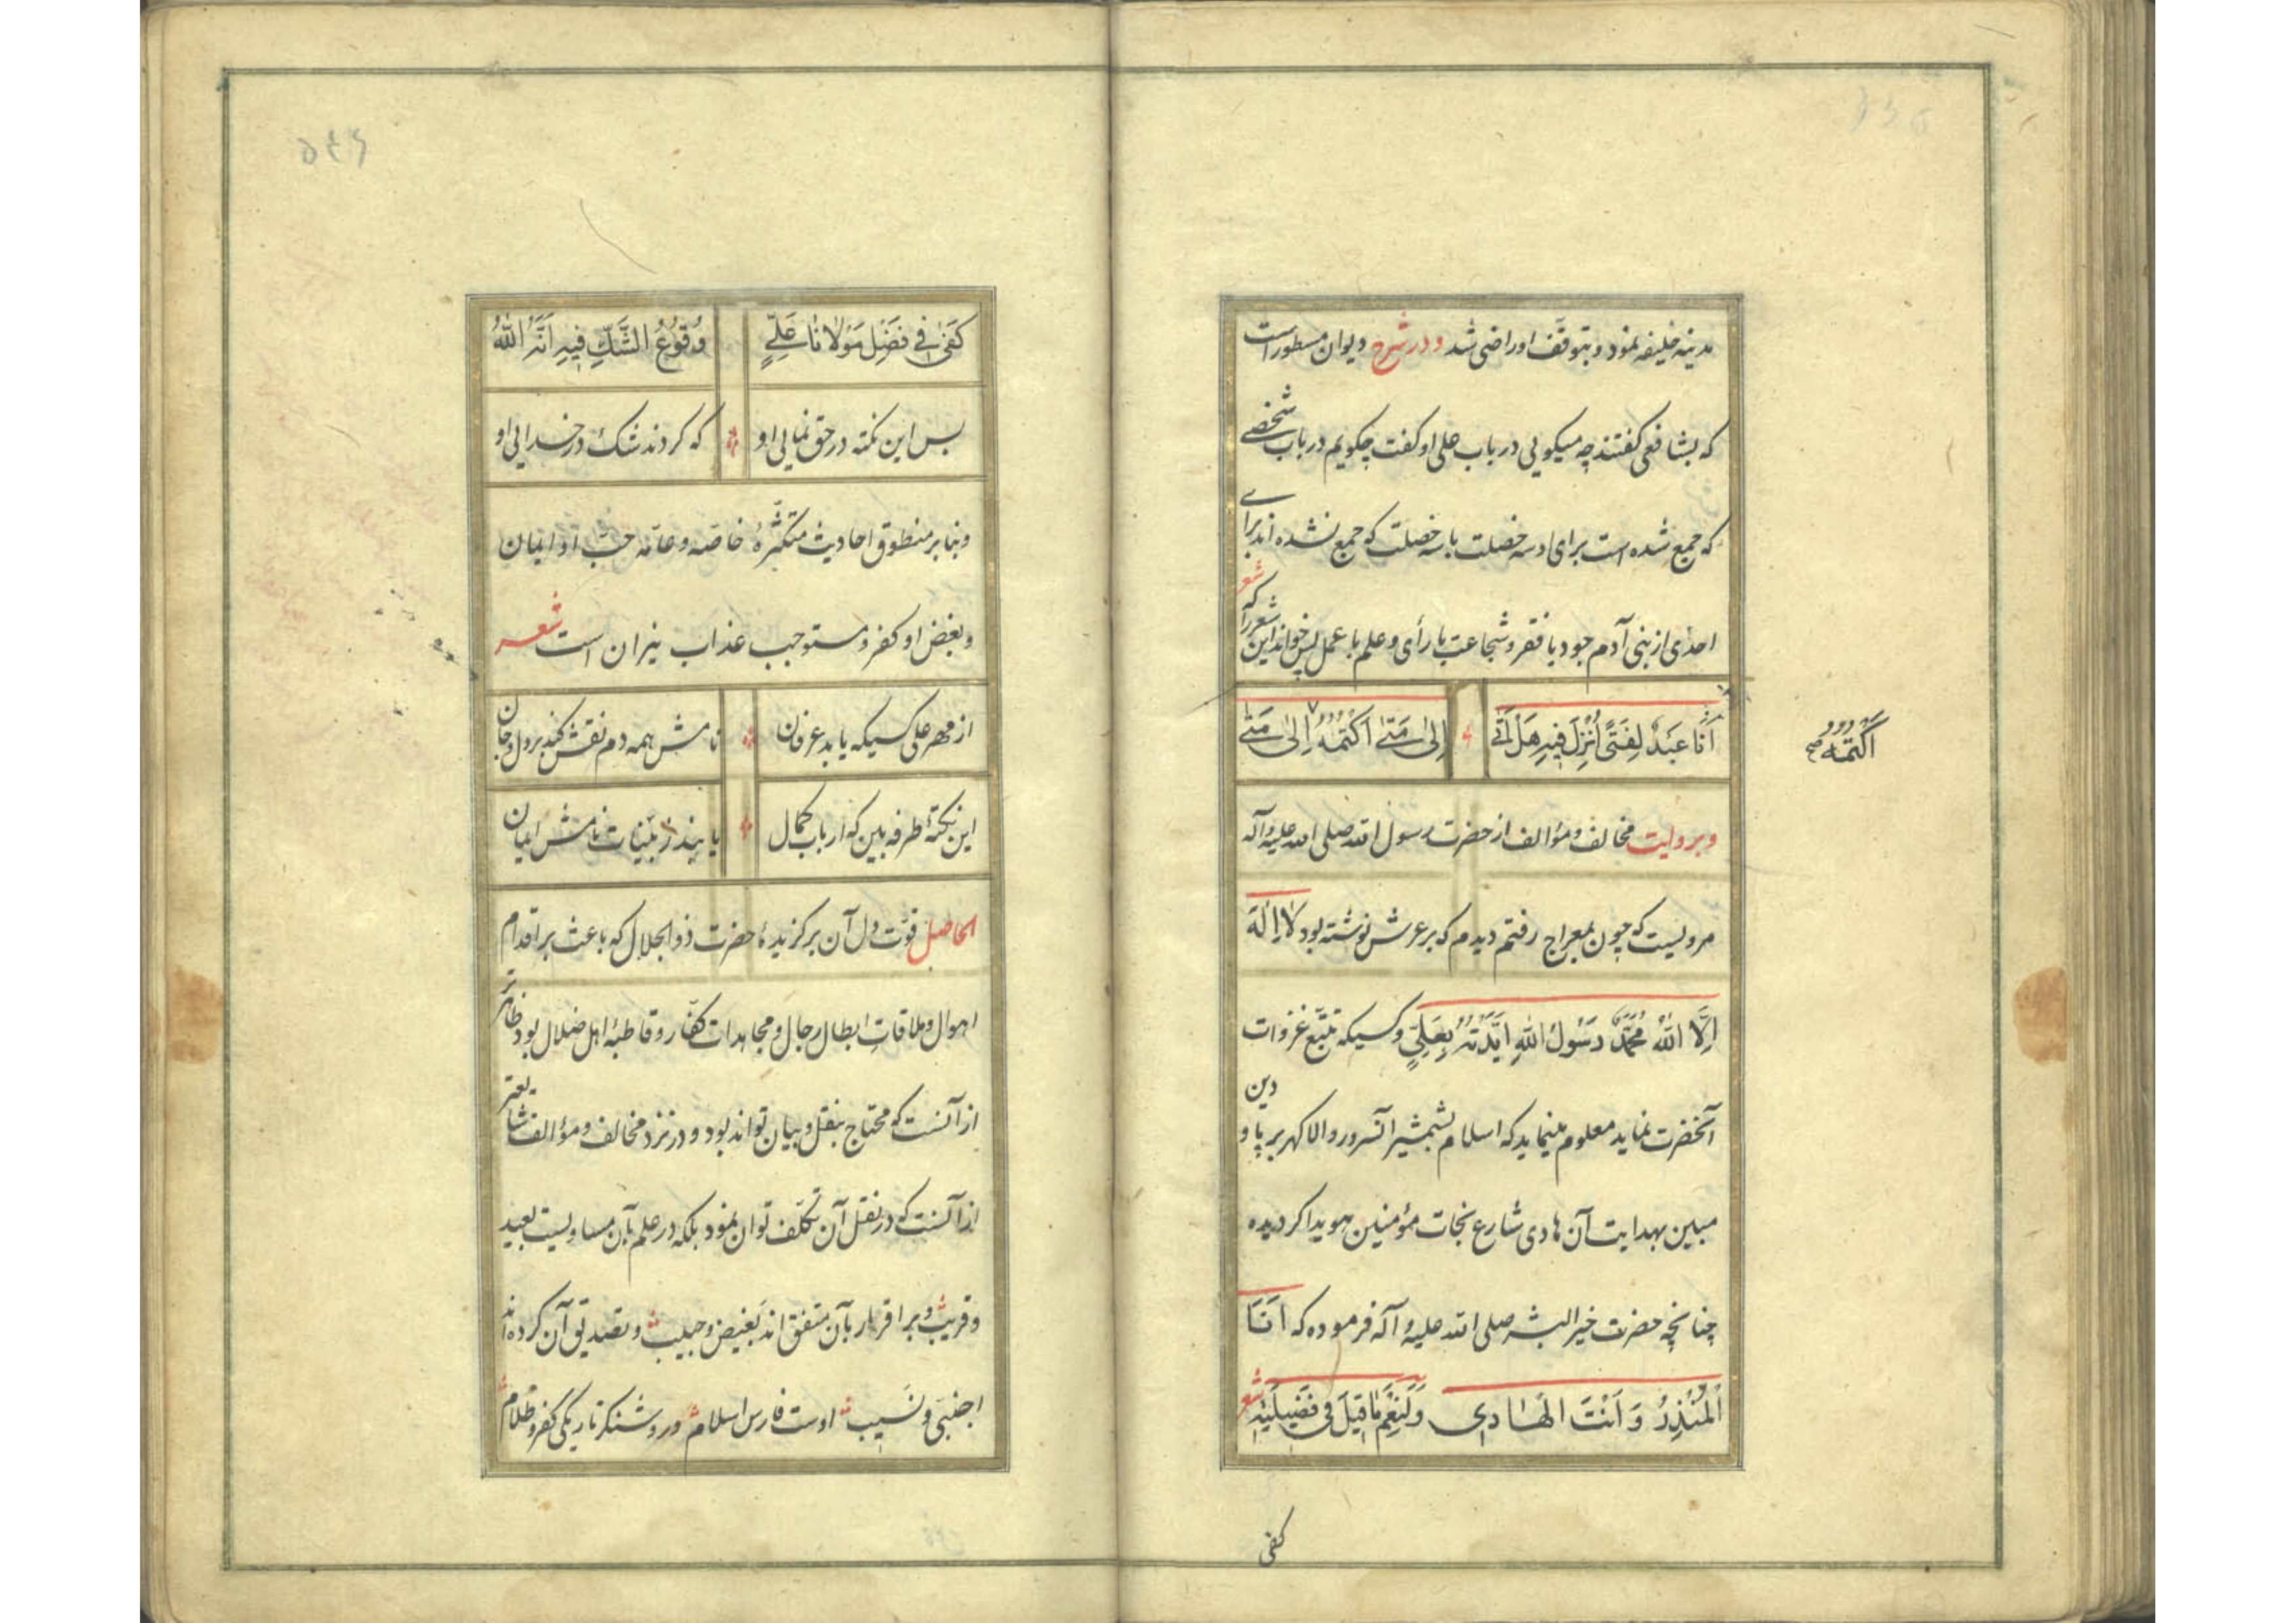 مدینه خلیفه نمود و بتوقف او راضی شد و در شرح دیوان مسطور است
که بشافعی گفتند چه میگویی در باب علی او گفت چگویم در باب شخصی
که جمع شده است برای او سه خصلت با سه خصلت که جمع نشده اند برای
احدی از بنی آدم جود با فقر و شجاعت با رأی و علم با عمل پس خواند این شعر را که شعر
اَنَا عَبْدٌ لِفَتًی اُنْزِلَ فِیهِ هَلْ اَتٰی اِلٰی مَتٰی اَکْتُمُهُ اِلٰی مَتٰی
اَکْتُمُهُ صح
و بروایت مخالف و مؤالف از حضرت رسول الله صلی الله علیه و آله
مرویست که چون بمعراج رفتم دیدم که بر عرش نوشته بود لَا اِلٰهَ
اِلَّا اللّٰهُ مُحَمَّدٌ رَسُولُ اللّٰهِ اَیَّدْتُهُ بِعَلِیٍّ و کسیکه تتبّع غزوات
آنحضرت نماید معلوم مینماید که اسلام بشمشیر آنسرور والا گهر بر پا و دین
مبین بهدایت آن هادی شارع نجات مؤمنین هویدا گردیده
چنانچه حضرت خیر البشر صلی الله علیه و آله فرموده که اَنَا
الْمُنْذِرُ وَ اَنْتَ الْهَادِی وَلَنِعْمَ مَا قِیلَ فِی فَضِیلَتِهِ شعر
کفی
۵۴۶
کَفٰی فِی فَضْلِ مَوْلَانَا عَلِیٍّ وُقُوعُ الشَّكِّ فِیهِ اَنَّهُ اللّٰهُ
بس این نکته در حق نمایی او که کردند شک در خدایی او
و بنا بر منطوق احادیث متکثّرهٔ خاصّه و عامّه حبّ او ایمان
و بغض او کفر و مستوجب عذاب نیران است شعر
از مهر علی کسیکه یابد عرفان نامش همه دم نقش کند بر دل و جان
این نکتهٔ طرفه بین که ارباب کمال یابند ز بیّنات نامش ایمان
الحاصل قوّت دل آن برگزیدهٔ حضرت ذو الجلال که باعث بر اقدام
اهوال و ملاقات ابطال رجال و مجاهدات کفّار و قاطبهٔ اهل ضلال بود ظاهرتر
از آنست که محتاج بنقل و بیان تواند بود و در نزد مخالف و مؤالف شایعتر
از آنست که در نقل آن تکلّف توان نمود بلکه در علم بآن مساویست بعید
و قریب و بر اقرار بآن متفق اند بَغیض و حبیب و تصدیق آن کرده اند
اجنبی و نَسیب اوست فارس اسلام و روشنگر تاریکی کفر و ظلام